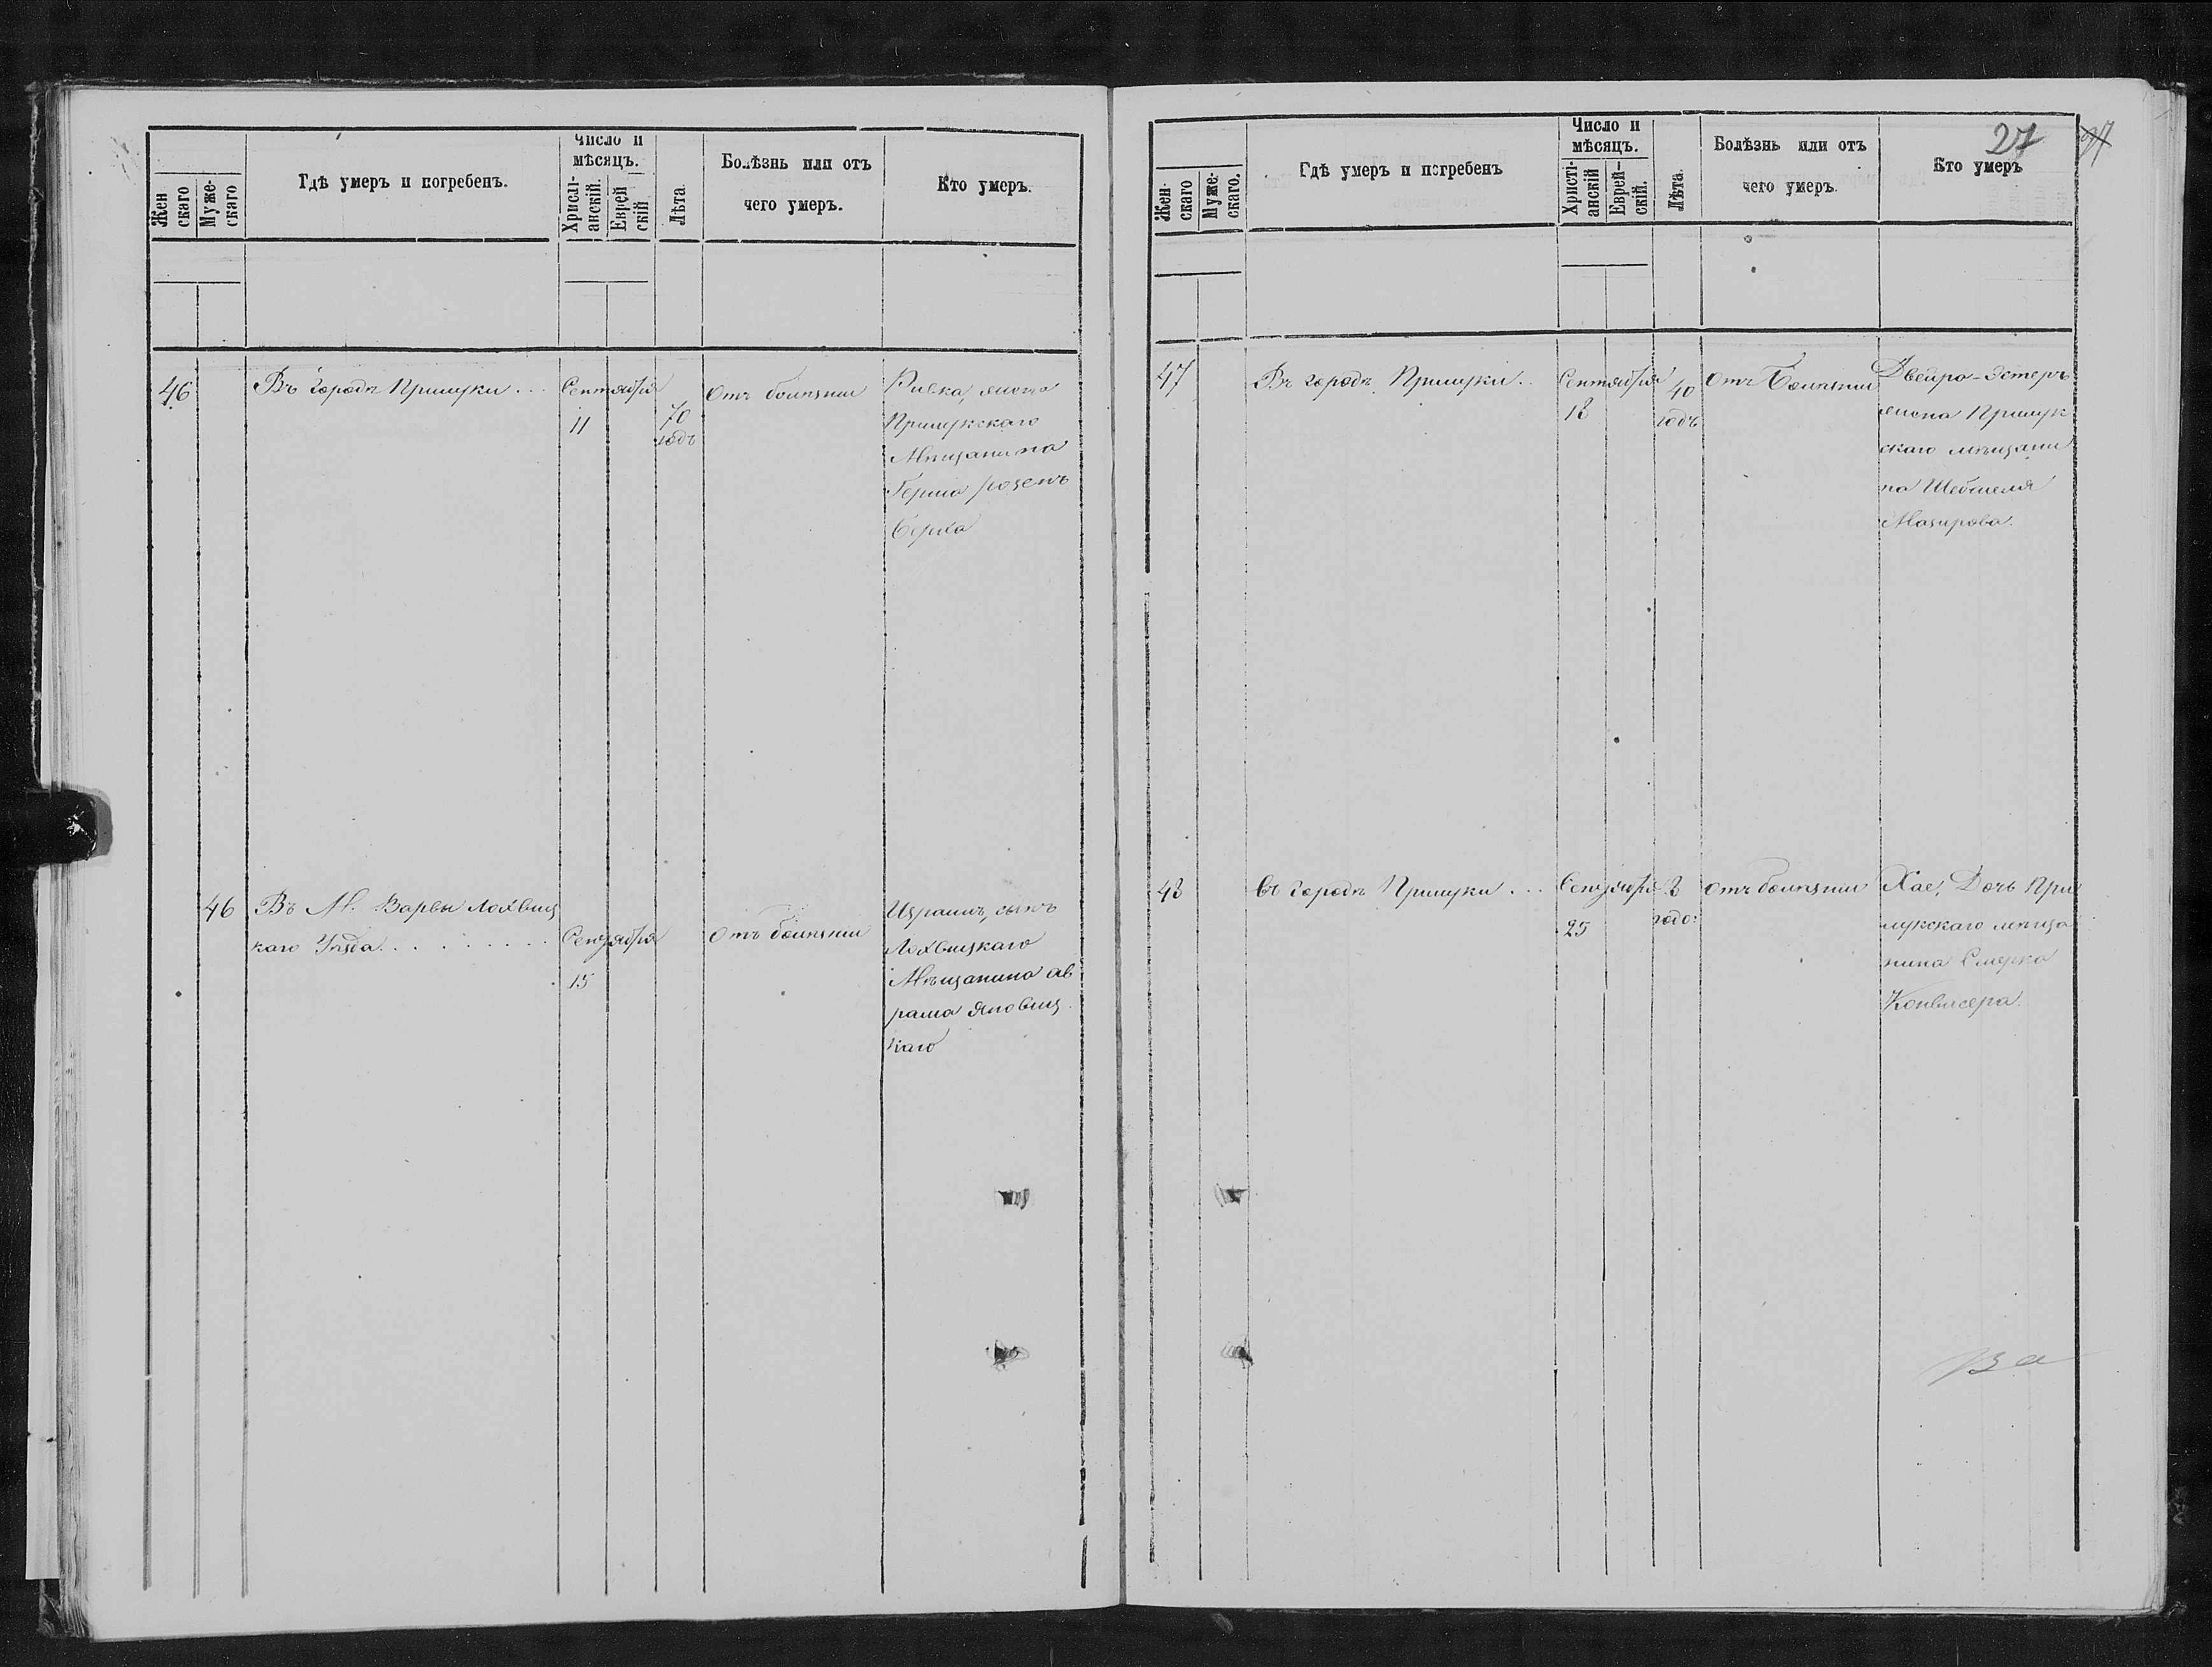 Жен
скаго
Муже-
скаго
Гдѣ умеръ и погребенъ.
Число и
мѣсяцъ.
Христі-
анскій.
Еврей
скій
Лѣта.
Болѣзнь или отъ
чего умеръ.
Кто умеръ.
46
Въ городѣ Прилуки...
Сентября
11
70
годъ
Отъ болѣзни
Ривка, жена
Прилукскаго
Мѣщанина
Герша розенъ
берха
46
Въ М. Варвы Лохвиц
каго Уѣзда.........
Сентября
15
Отъ болѣзни
Израиль, сынъ
Лохвицкаго
Мѣщанина ав
рама Яновиц
каго
27
Жен-
скаго
Муже-
скаго.
Гдѣ умеръ и погребенъ
Число и
мѣсяцъ.
Христі-
анскій
Еврей-
скій.
Лѣта.
Болѣзнь или отъ
чего умеръ.
Кто умеръ
47
Въ городѣ Прилуки..
Сентября
13
40
годъ
Отъ Болѣзни
Двейра-Эстеръ
жена Прилук
скаго мѣщани
на Шебшеля
Мазирова.
48
въ городѣ Прилуки...
Сентября
25
3
годо:
отъ болѣзни
Хае, Дочь При
лукскаго мѣща
нина Смерка
Конвисера.